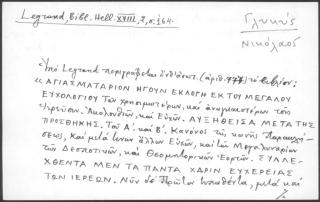 Legrand, Bibl. Hell. XXIII, 2, σ. 164.
Γλυκύς
Νικόλαος
Ὑπὸ Legrand περιγράφεται ἐνθ' ἀνωτ. (ἀριθ. 777) τὸ βιβλίον:
«ΑΓΙΑΣΜΑΤΑΡΙΟΝ ΗΓΟΥΝ ΕΚΛΟΓΗ ΕΚ ΤΟΥ ΜΕΓΑΛΟΥ
ΕΥΧΟΛΟΓΙΟΥ Τῶν χρησιμωτέρων, καὶ ἀναγκαιοτέρων τοῖς
Ἱερεῦσιν. Ἀκολουθιῶν, καὶ Εὐχῶν. ΑΥΞΗΘΕΙΣΑ ΜΕΤΑ ΤΗΣ
ΠΡΟΣΘΗΚΗΣ. Τοῦ Α΄. καὶ Β΄. Κανόνος τῆς κοινῆς Παρακλή-
σεως, καὶ μετά τινων ἄλλων Εὐχῶν, καὶ τῶν Μεγαλυναρίων
τῶν Δεσποτικῶν, καὶ Θεομητορικῶν Ἑορτῶν. ΣΥΛΛΕ-
ΧΘΕΝΤΑ ΜΕΝ ΤΑ ΠΑΝΤΑ ΧΑΡΙΝ ΕΥΧΕΡΕΙΑΣ
ΤΩΝ ΙΕΡΕΩΝ. Νῦν δὲ Πρῶτον τυπωθέντα, μετὰ καὶ